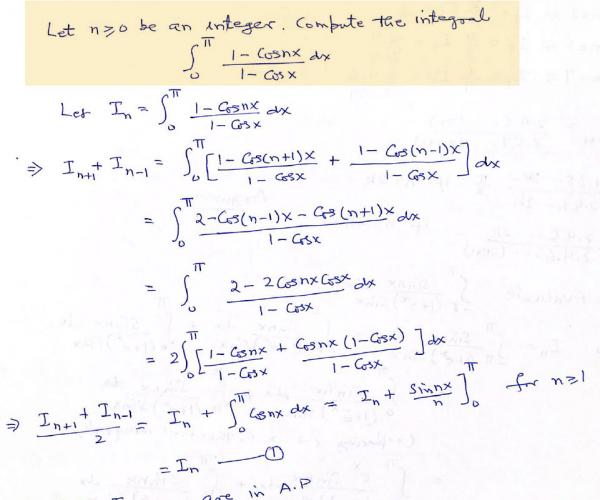 Let n≥0 be an integer. Compute the integral
∫₀^π (1-Cosnx)/(1-Cosx) dx
Let Iₙ = ∫₀^π (1-Cosnx)/(1-Cosx) dx
⇒ Iₙ₊₁ + Iₙ₋₁ = ∫₀^π [(1-Cos(n+1)x)/(1-Cosx) + (1-Cos(n-1)x)/(1-Cosx)] dx
= ∫₀^π (2-Cos(n-1)x-Cos(n+1)x)/(1-Cosx) dx
= ∫₀^π (2-2CosnxCosx)/(1-Cosx) dx
= 2∫₀^π [(1-Cosnx)/(1-Cosx) + (Cosnx(1-Cosx))/(1-Cosx)] dx
⇒ (Iₙ₊₁ + Iₙ₋₁)/2 = Iₙ + ∫₀^π Cosnx dx = Iₙ + (sinnx)/n ]₀^π for n≥1
= Iₙ —— ①
are in A.P